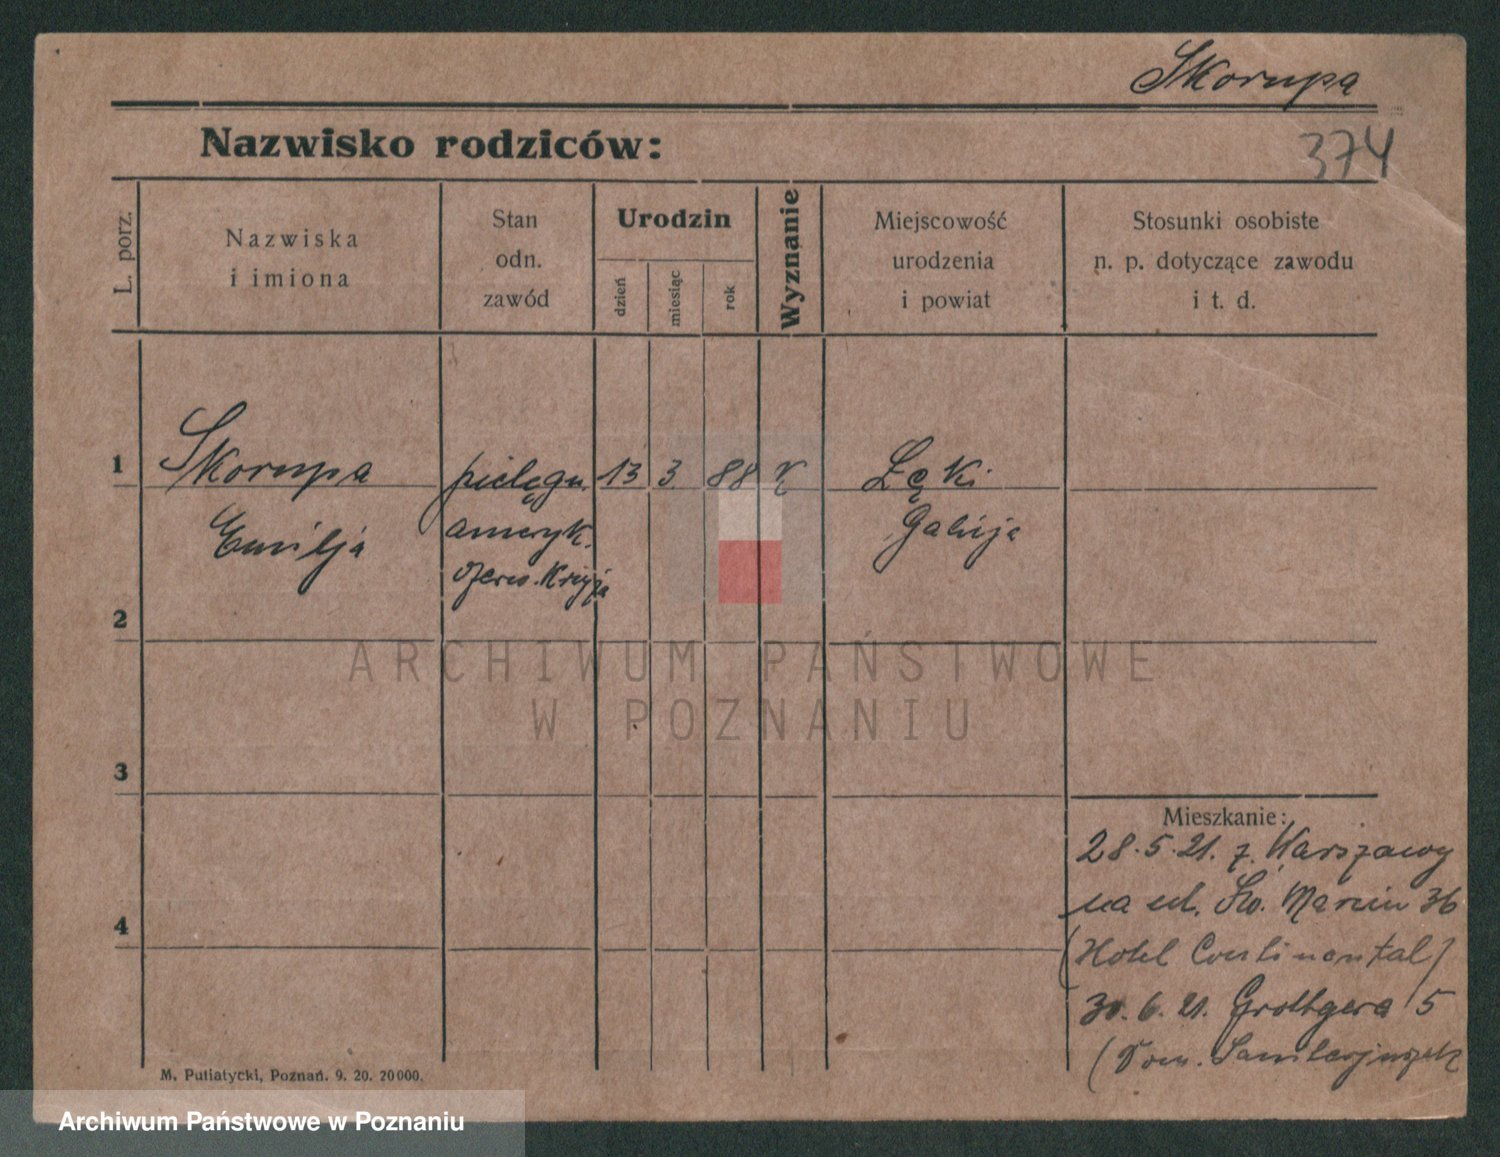 Skorupa
374
Nazwisko rodziców:
L. porz.
Nazwiska
i imiona
Stan
odn.
zawód
Urodzin
dzień
miesiąc
rok
Wyznanie
Miejscowość
urodzenia
i powiat
Stosunki osobiste
n. p. dotyczące zawodu
i t. d.
1 Skorupa pielęgn. 13 3 88 K Łęki
Emilja ameryk. Galicja
czerw. Krzyża
2
ARCHIWUM PAŃSTWOWE
W POZNANIU
3
Mieszkanie:
28.5.21. z Warszawy
na ul. Św. Marcin 36
(Hotel Continental)
4
30.6.21. Grottgera 5
(Dom. Sanitarjuszek
M. Putiatycki, Poznań. 9. 20. 20000.
Archiwum Państwowe w Poznaniu